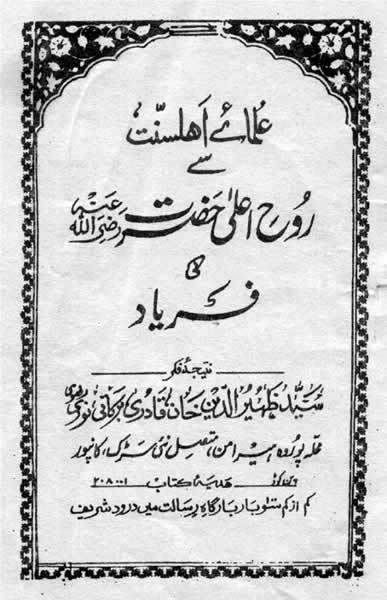 عُلمائے اَھلسنّت
سے
رُوحِ اعلیٰ حَضرت رَضِیَ اللہُ عَنْہُ
کی
فریاد
نتیجۂ فکر
سُیّد ظہیرُ الدّین خان قادری برکاتی نوری رضوی
محلہ پوروہ ہیرامن، متصل نئی سڑک، کانپور
ھدیۂ کتاب ۲۰۸۰۰۱
کم از کم ستو بار بارگاہِ رسالت میں درود شریف